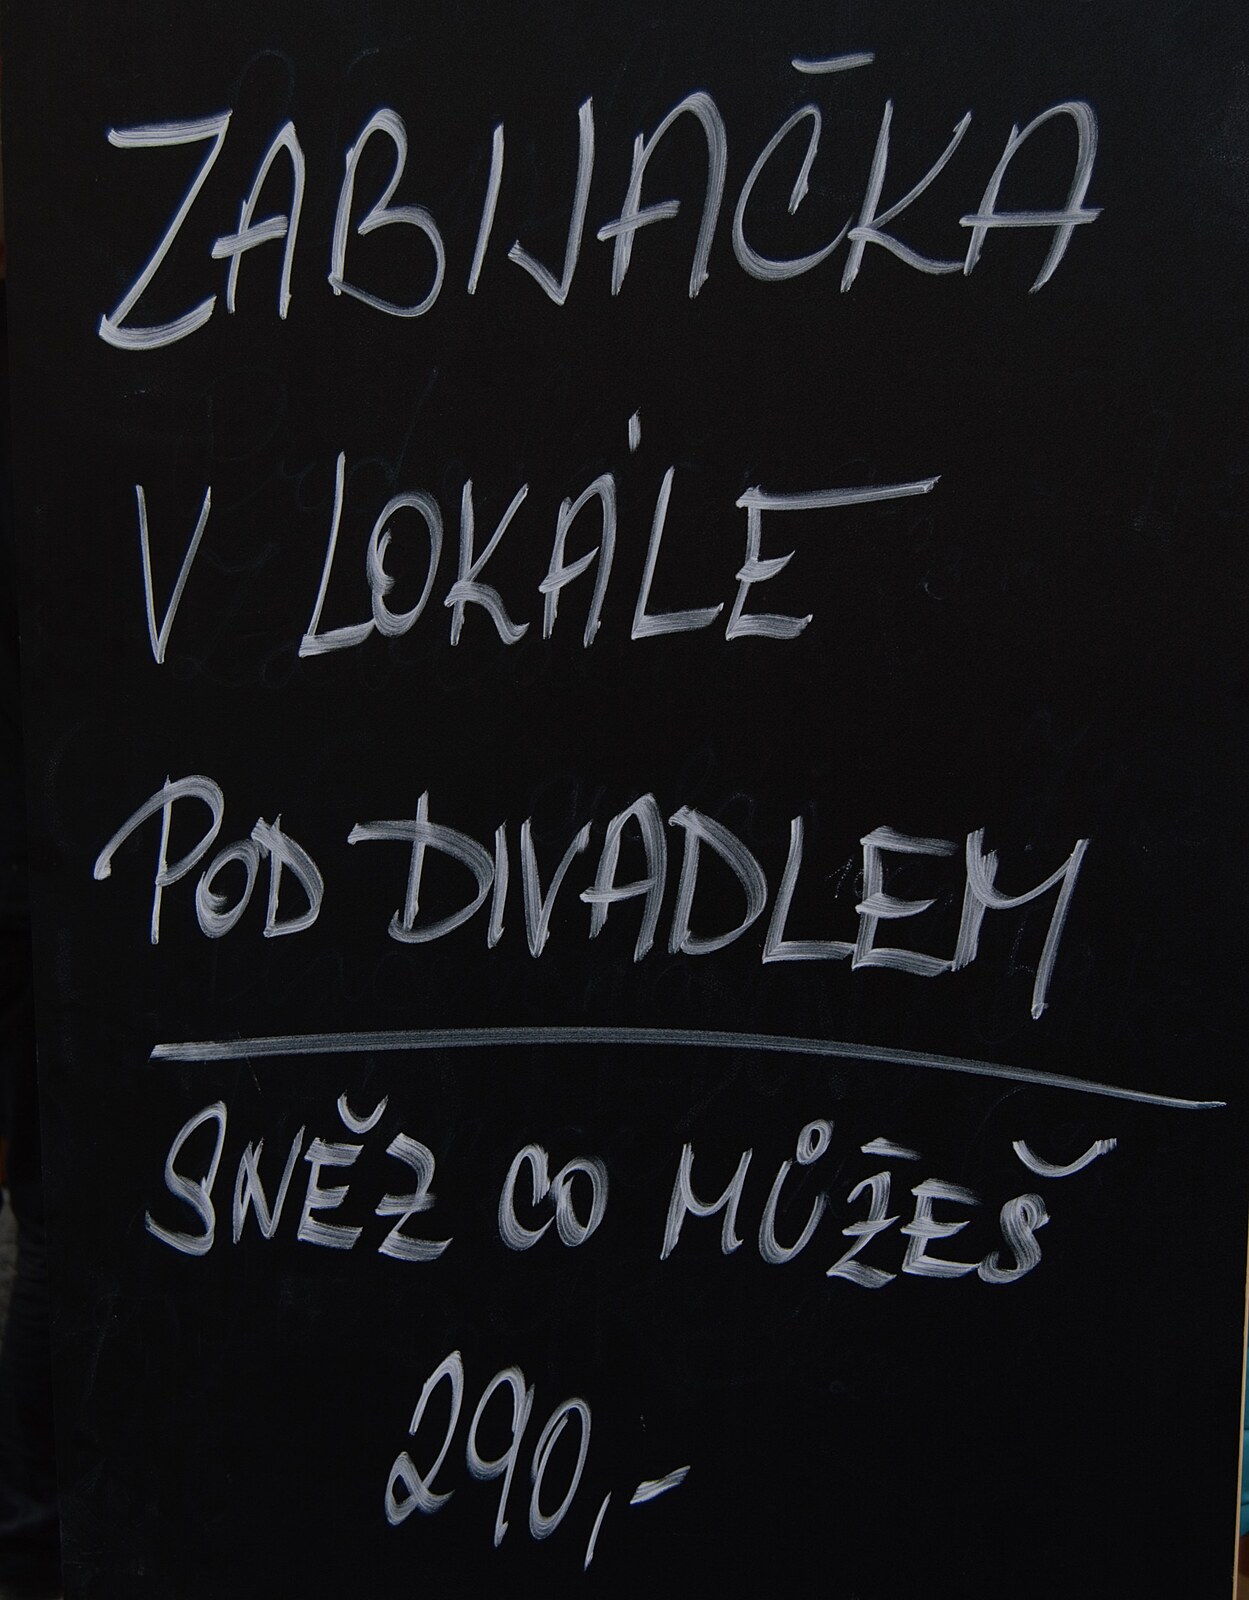 ZABIJAČKA
V LOKÁLE
POD DIVADLEM
SNĚZ CO MŮŽEŠ
290,-